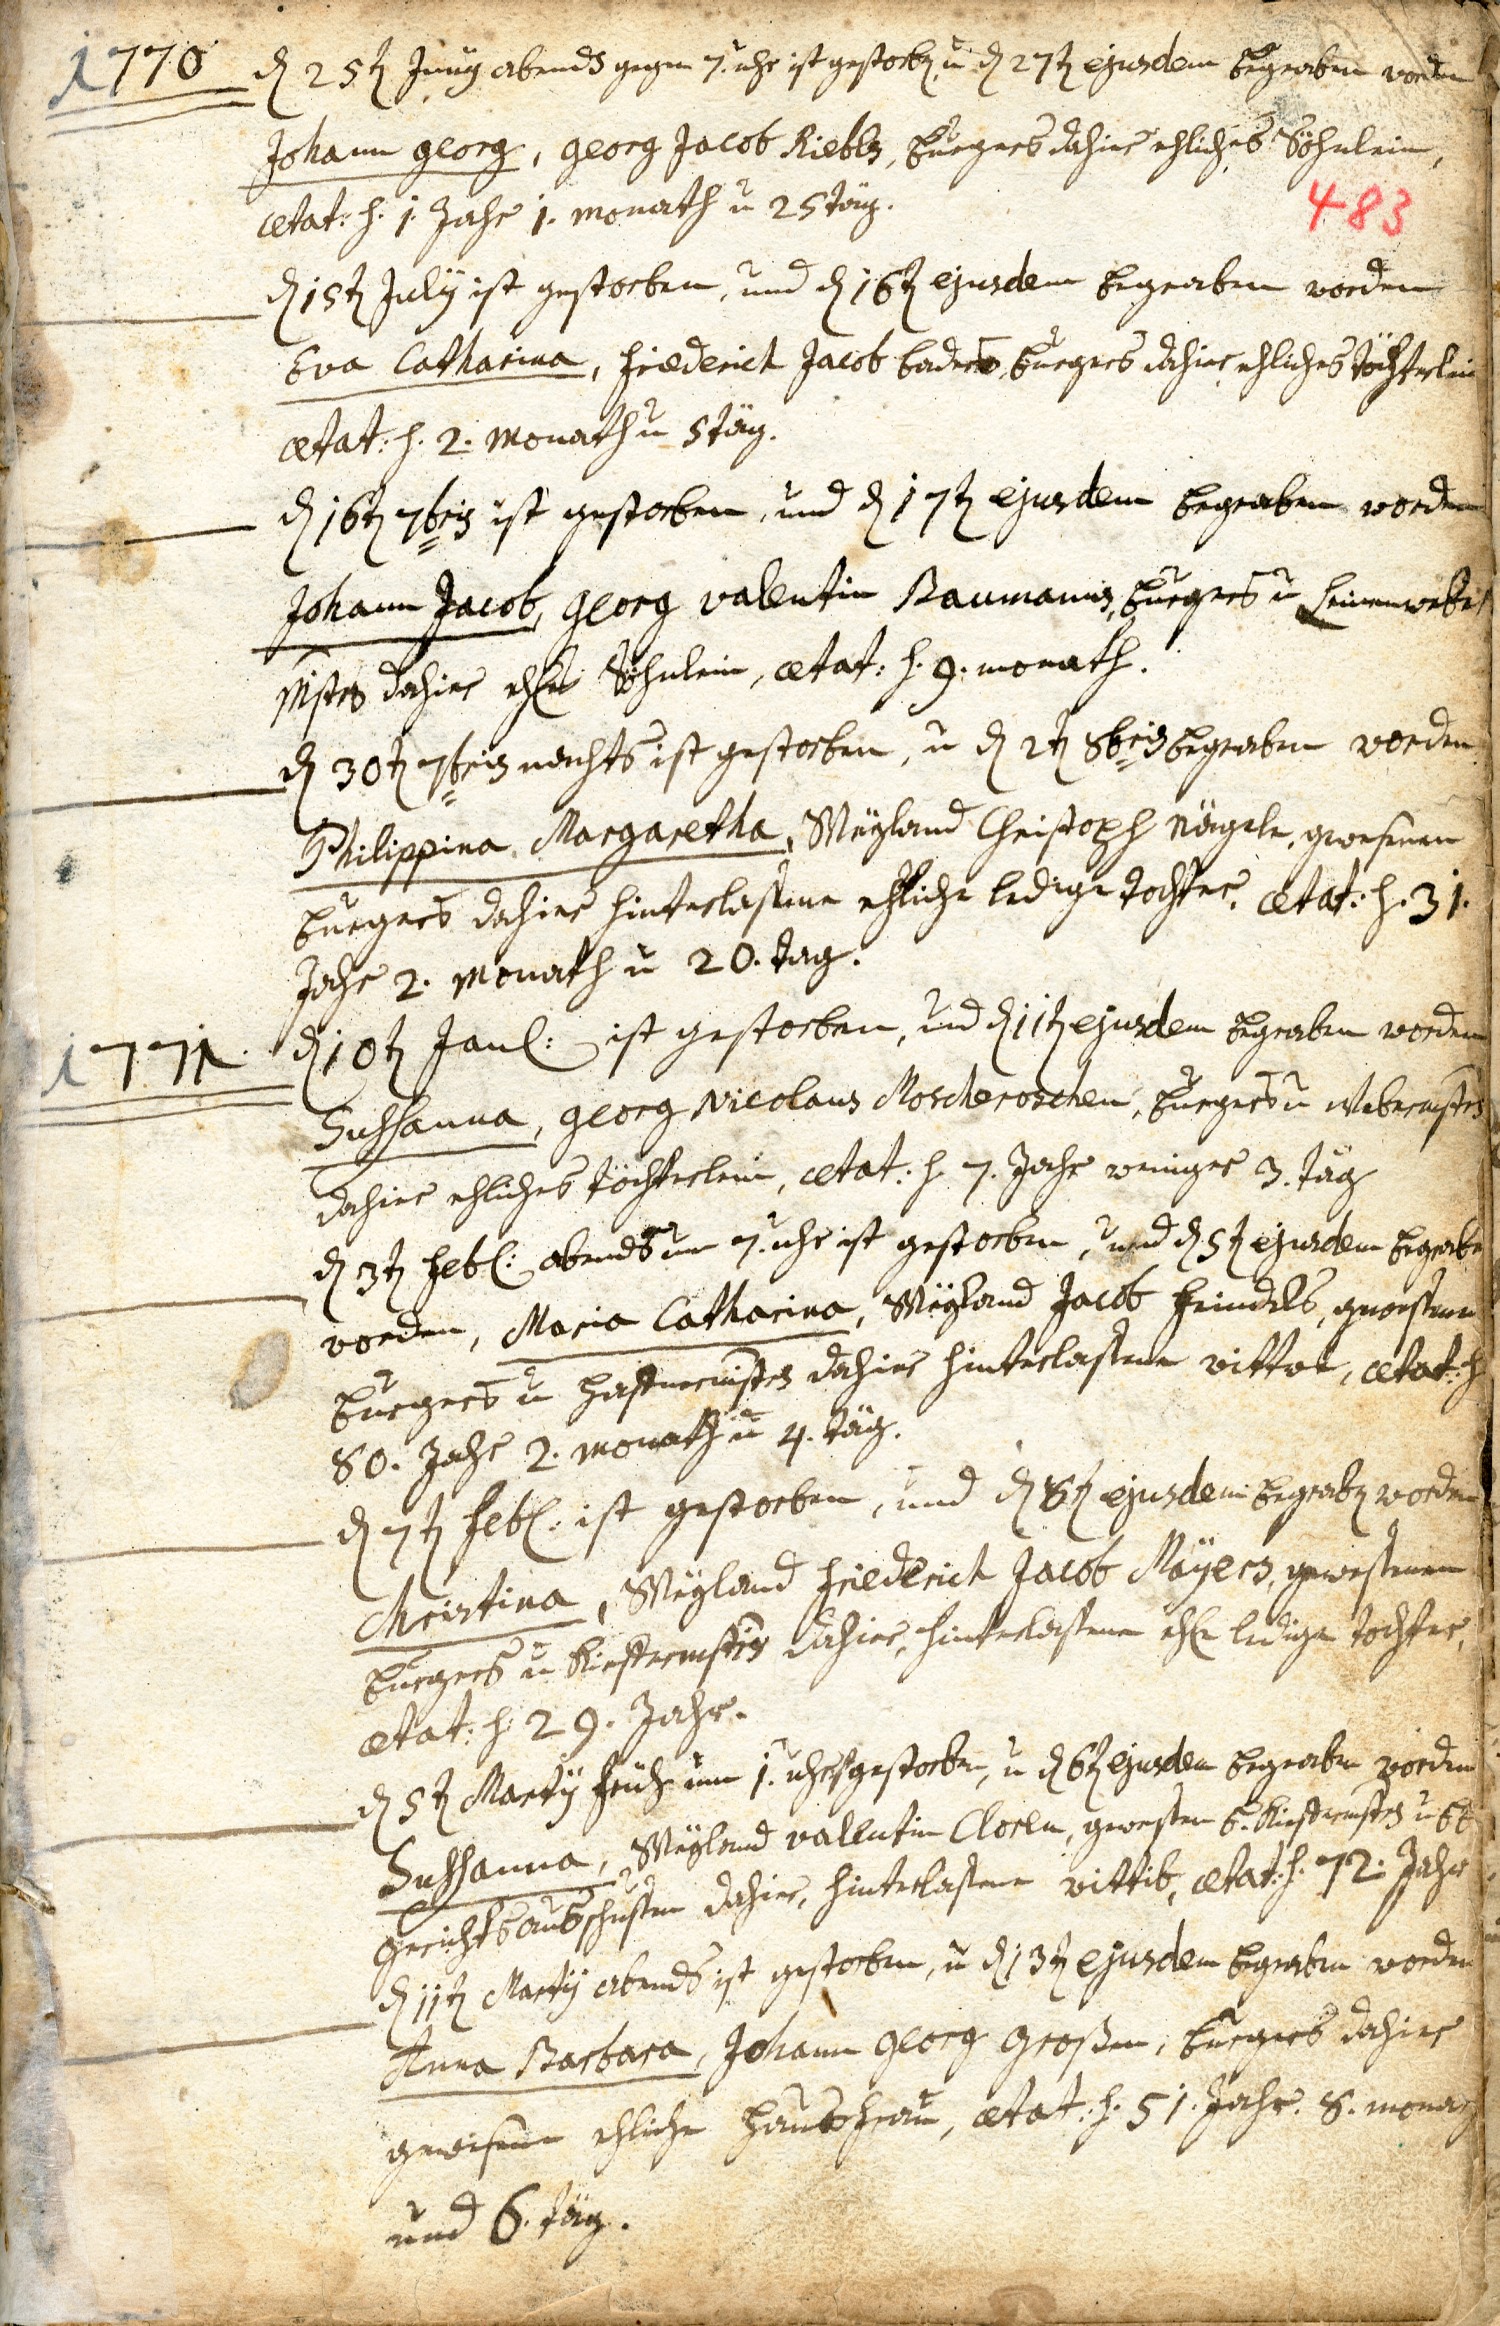 1770 d 25t Juny abends gegen 7. uhr ist gestorb. u d 27t ejusdem begraben worden
Johann Georg, Georg Jacob Riebls, burgers dahier ehliches Söhnlein,
ætat: h. 1. Jahr 1. monath u 25 täg.
483
d 15t July ist gestorben, und d 16t ejusdem begraben worden
Eva Catharina, Friederich Jacob Baders, burgers dahier, ehliches töchterlein
ætat: h. 2. monath u 5 täg.
d 16t 7bris ist gestorben, und d 17t ejusdem begraben worden
Johann Jacob, Georg Valentin Baumanns, burgers u Leinenweber
Mstrs dahier ehl. Söhnlein, ætat: h. 9. monath.
d 30t 7bris nachts ist gestorben, u d 2t 8bris begraben worden
Philippina Margaretha, Weyland Christoph Nägele, gewesenen
burgers dahier hinterlaßene ehliche ledige tochter, ætat: h. 31.
Jahr 2. monath u 20. tag.
1771. d 10t Jan: ist gestorben, und d 11t ejusdem begraben worden
Sussanna, Georg Nicolaus Moscheroschen, burgers u Webermstrs
dahier ehliches töchterlein, ætat: h. 7. Jahr weniger 3. täg
d 3t Feb: abends um 7. uhr ist gestorben, und d 5t ejusdem begraben
worden, Maria Catharina, Weyland Jacob Heindels, gewesenen
burgers u hafnermstrs dahier hinterlaßene wittwe, ætat: h
80. Jahr 2. monath u 4. täg.
d 7t Feb: ist gestorben, und d 8t ejusdem begrab. worden
Christina, Weyland Friederich Jacob Mäyers, gewesenen
burgers u Kiefermstrs dahier, hinterlaßene ehl. ledige tochter,
ætat: h. 29. Jahr.
d 5t Marty früh um 1. uhr gestorben, u d 6t ejusdem begraben worden
Sussanna, Weyland Valentin Cloeln, gewesen b. Kiefermstrs u
gerichtsausschussen dahier, hinterlaßene wittib, ætat: h. 72. Jahr
d 11t Marty abends ist gestorben, u d 13t ejusdem begraben worden
Anna Barbara, Johann Georg Großen, burgers dahier
gewesene ehliche haußfrau, ætat: h. 51. Jahr. 8. monath
und 6. täg.